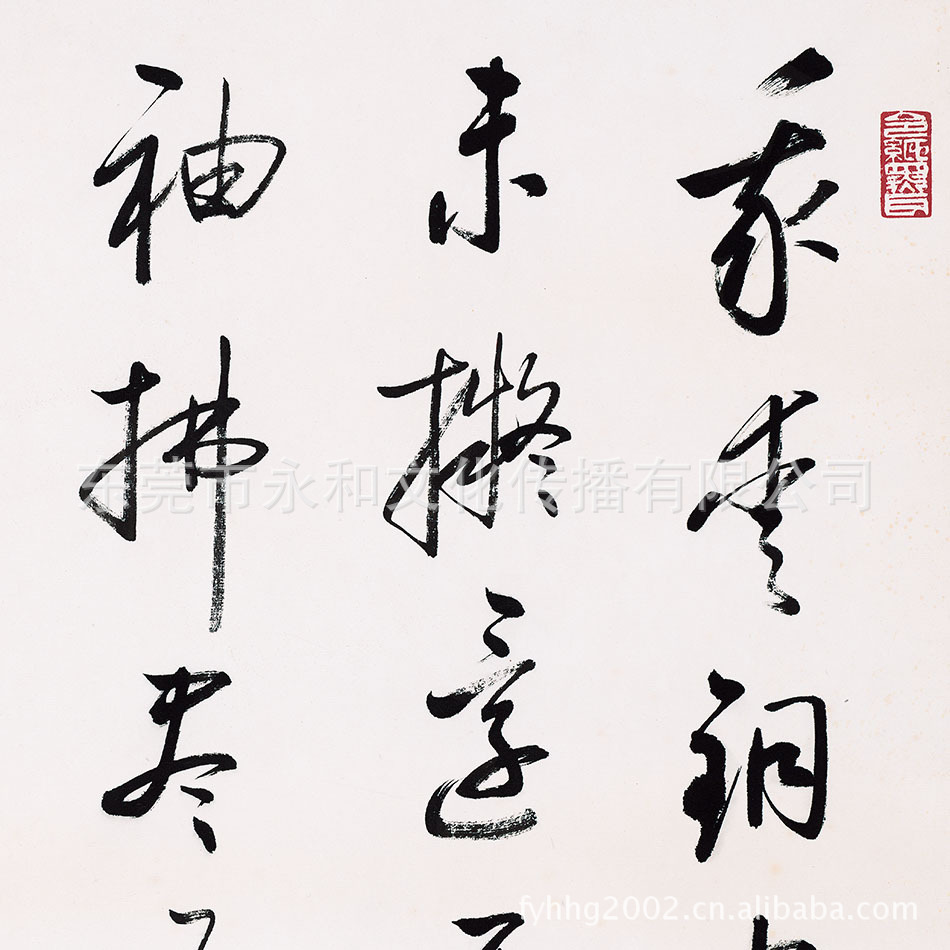 我愛銅
未擬還
袖拂盡
东莞市永和文化传播有限公司
fyhhg2002.cn.alibaba.com